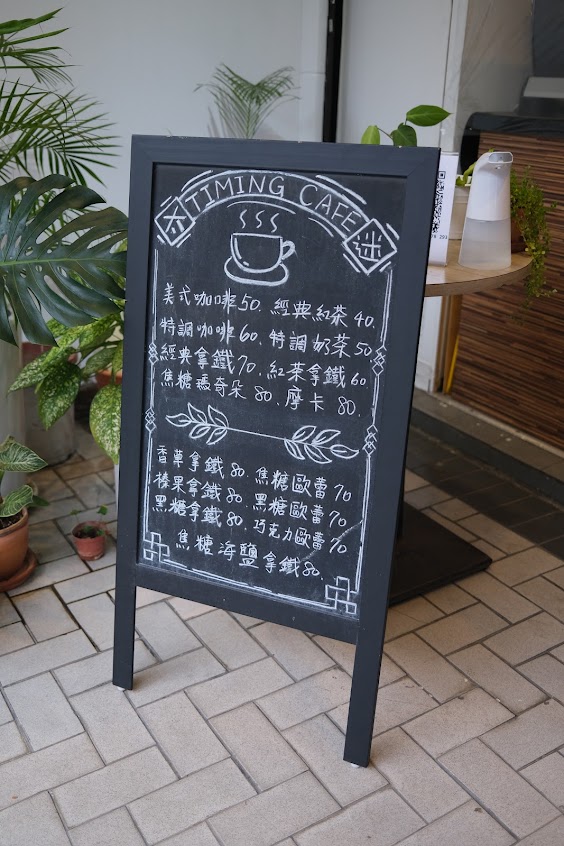 TIMING CAFE 迷
美式咖啡50. 經典紅茶40.
特調咖啡60. 特調奶茶50
經典拿鐵70. 紅茶拿鐵60
焦糖瑪奇朵 80. 摩卡 80.
香草拿鐵 80. 焦糖歐蕾 70
榛果拿鐵 80. 黑糖歐蕾 70
黑糖拿鐵 80. 巧克力歐蕾 70
焦糖海鹽拿鐵80.